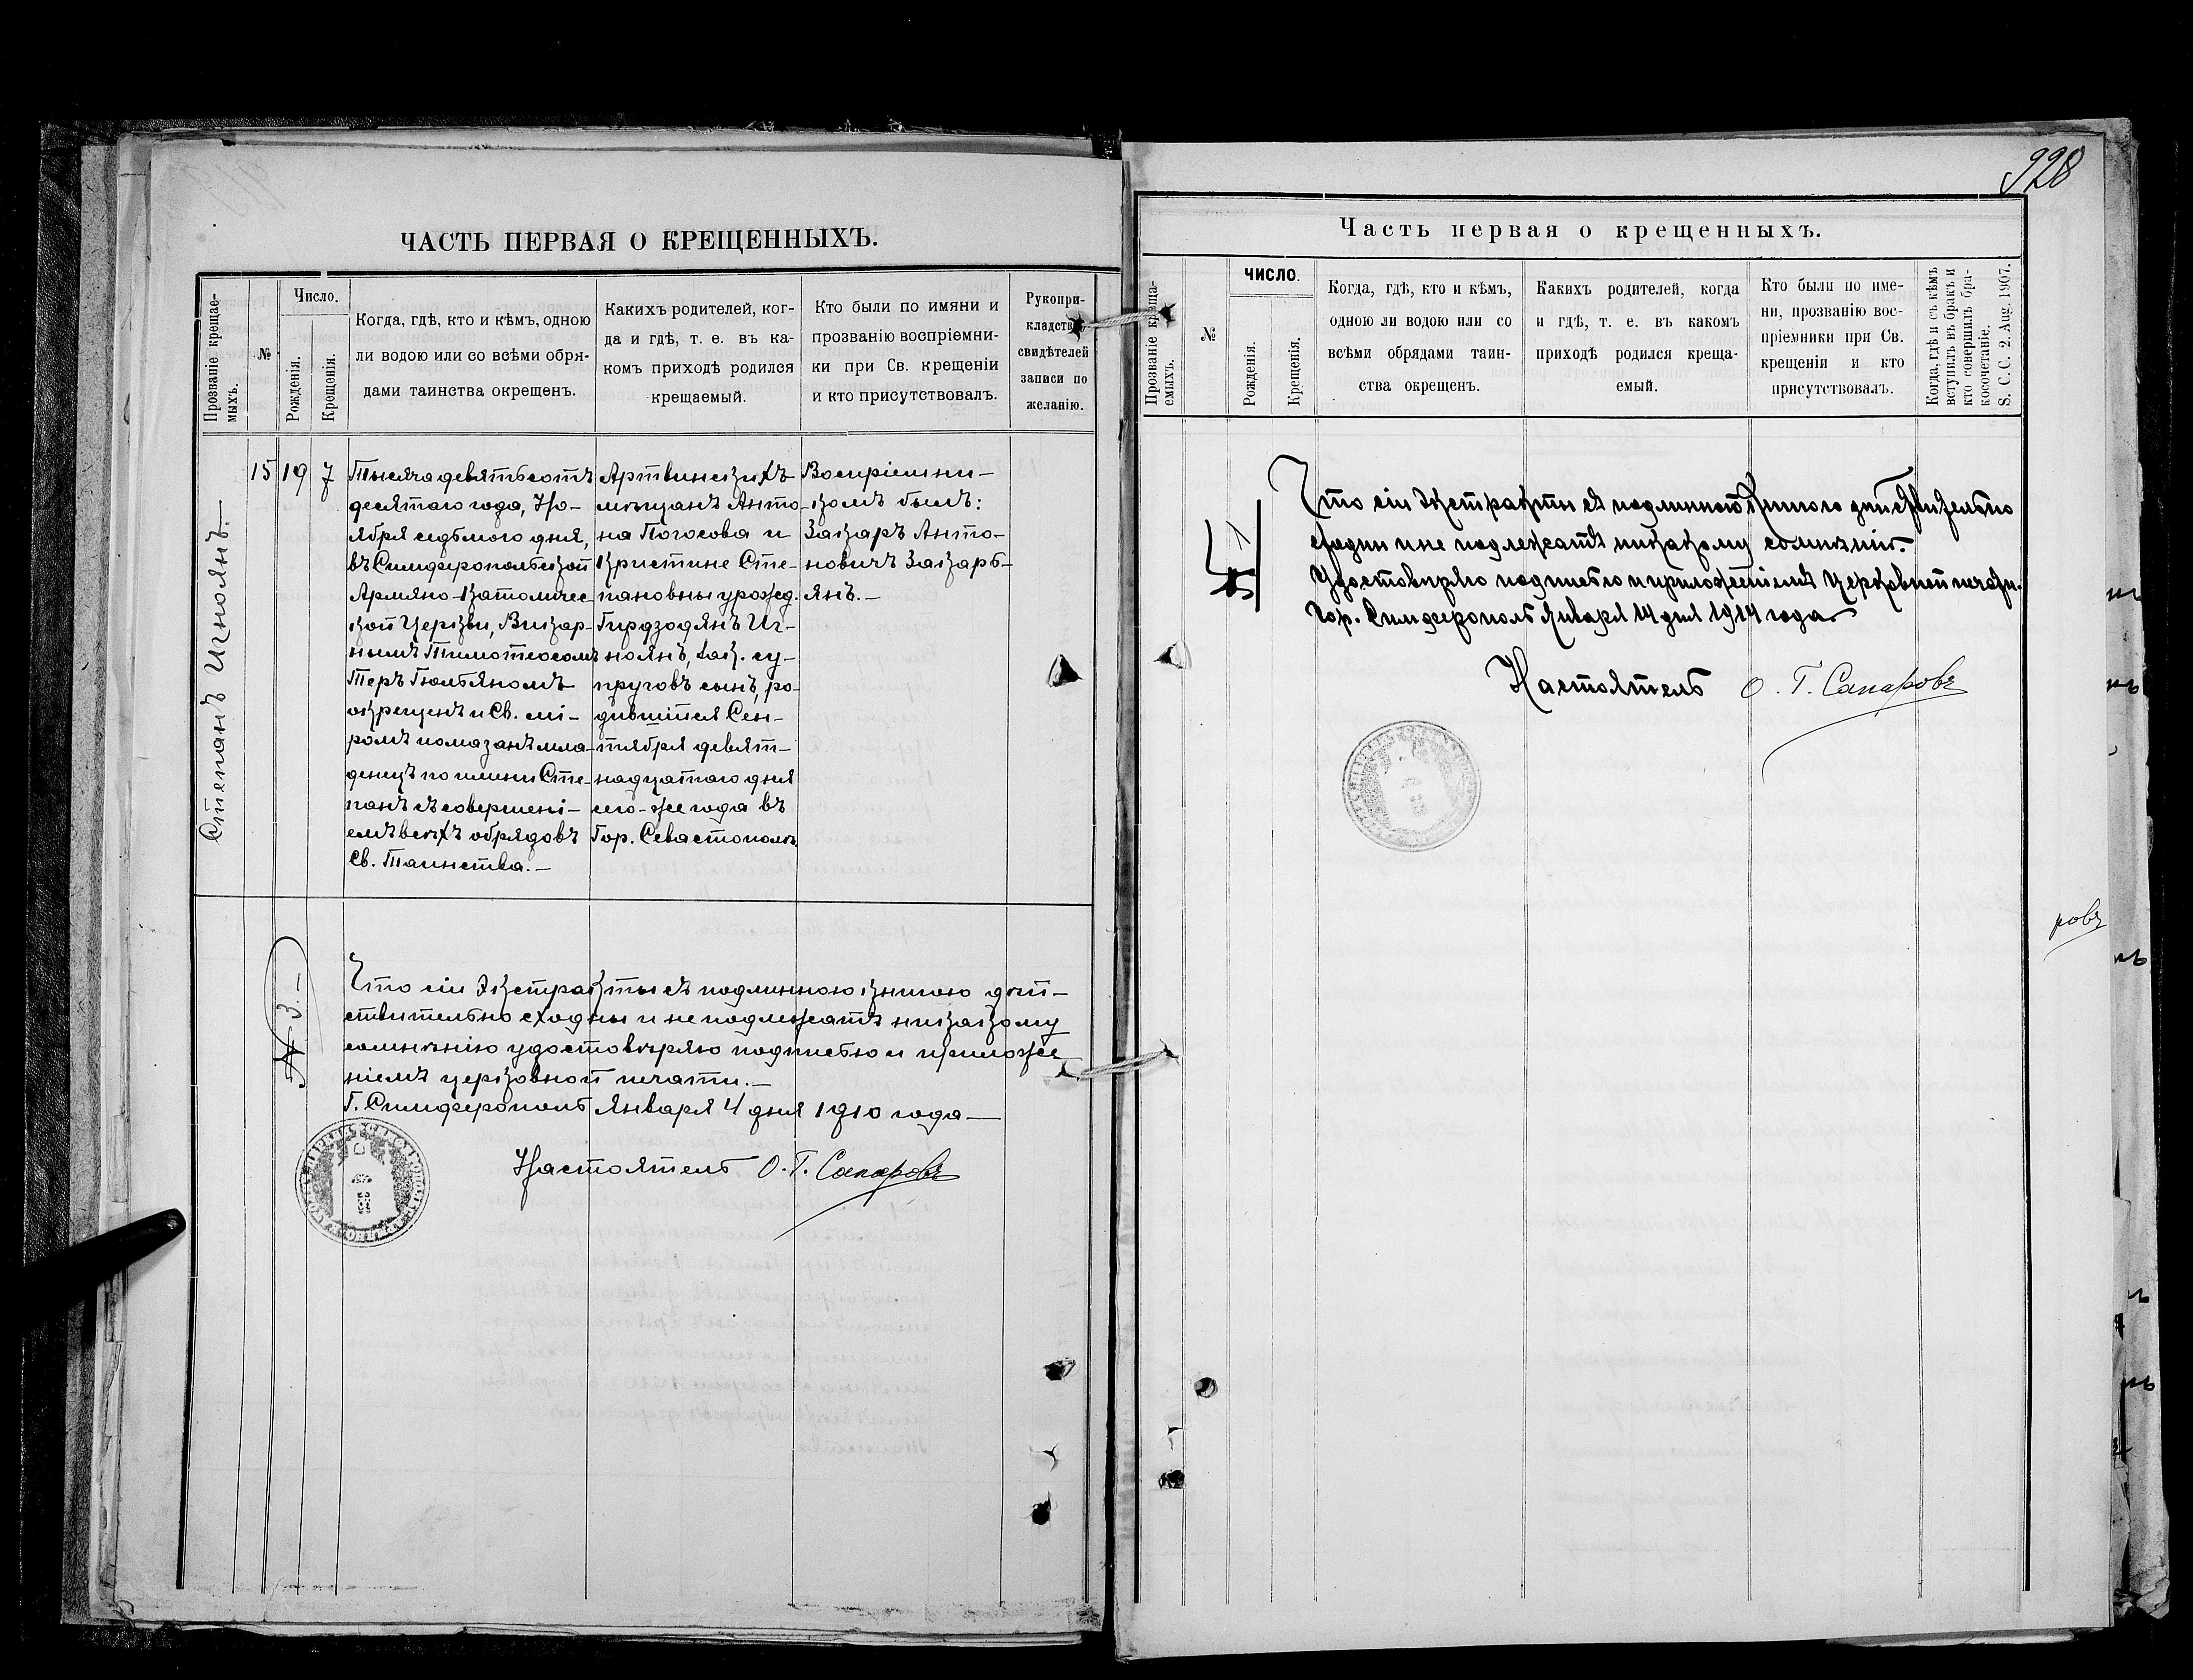 ЧАСТЬ ПЕРВАЯ О КРЕЩЕННЫХЪ.
Прозваніе крещае-
мыхъ.
№
Число.
Рожденія.
Крещенія.
Когда, гдѣ, кто и кѣмъ, одною
ли водою или со всѣми обря-
дами таинства окрещенъ.
Какихъ родителей, ког-
да и гдѣ, т. е. въ ка-
комъ приходѣ родился
крещаемый.
Кто были по имяни и
прозванію воспріемни-
ки при Св. крещеніи
и кто присутствовалъ.
Рукопри-
кладство
свидѣтелей
записи по
желанію.
Степанъ Игноянъ.—
15
19
7
Тысяча девятьсотъ
десятаго года, Но-
ября седьмого дня,
въ Симферопольской
Армяно-Католичес
кой Церкви, Викар-
нымъ Тимотеосомъ
Теръ Гюльяномъ
окрещенъ и Св. мѵ-
ромъ помазанъ мла-
денецъ по имени Сте-
панъ съ совершені-
емъ всѣхъ обрядовъ
Св. Таинства.—
Артвинскихъ
мѣщанъ Анто-
на Погосова и
Кристине Сте-
пановны урожд.
Гирдзодянъ Иг-
ноянъ, зак. су-
пруговъ сынъ, ро-
дившійся Сен-
тября девят-
надцатаго дня
сего-же года въ
Гор. Севастополѣ
Воспріемни-
комъ былъ:
Закаръ Анто-
новичъ Закарь-
янъ.—
№ 3.—
Что сіи Экстракты съ подлинною книгою дѣй-
ствительно сходны и не подлежатъ никакому
сомнѣнію удостовѣряю подписью и приложе
ніемъ церковной печати.—
Г. Симферополь Января 4 дня 1910 года—
Настоятель О. Г. Сапаровъ
928
Часть первая о крещенныхъ.
Прозваніе креща-
емыхъ.
№
ЧИСЛО.
Рожденія.
Крещенія.
Когда, гдѣ, кто и кѣмъ,
одною ли водою или со
всѣми обрядами таин-
ства окрещенъ.
Какихъ родителей, когда
и гдѣ, т. е. въ какомъ
приходѣ родился креща-
емый.
Кто были по име-
ни, прозванію вос-
пріемники при Св.
крещеніи и кто
присутствовалъ.
Когда, гдѣ и съ кѣмъ
вступилъ въ бракъ и
кто совершилъ бра-
косочетаніе.
S. C. C. 2. Aug. 1907.
Что сіи Экстракты съ подлинной Книгою дѣйствительно
сходны и не подлежатъ никакому сомнѣнію.
Удостовѣряю подписью и приложеніемъ Церковной печати.
Гор. Симферополь Января 14 дня 1914 года
Настоятель О. Г. Сапаровъ
ровъ